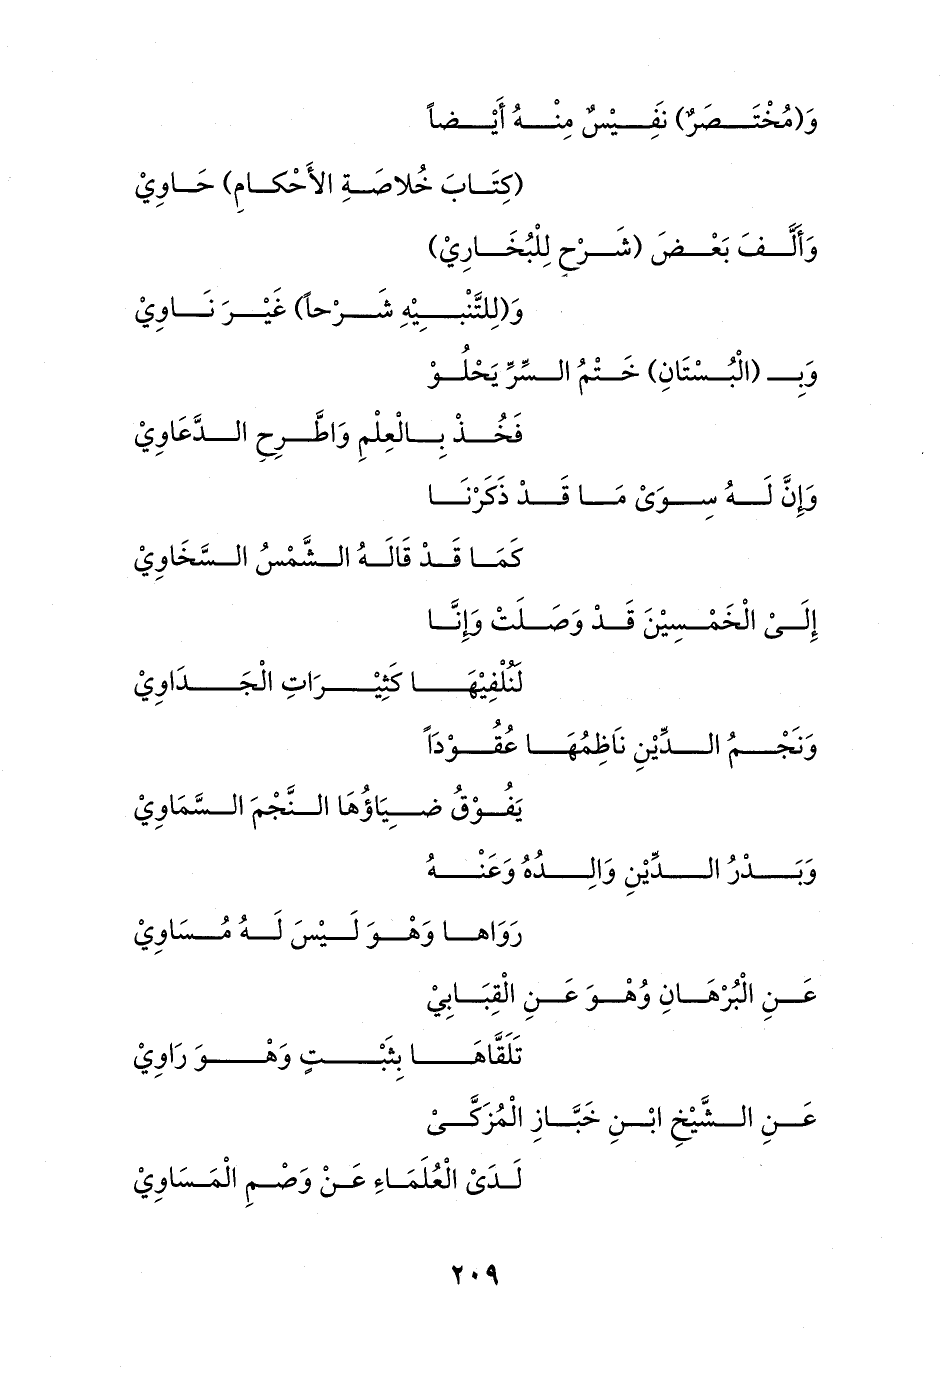 وَ(مُخْتَصَرٌ) نَفِيْسٌ مِنْهُ أَيْضاً
(كِتَابَ خُلاصَةِ الأَحْكَامِ) حَاوِيْ
وَأَلَّفَ بَعْضَ (شَرْحٍ لِلْبُخَارِيْ)
وَ(لِلتَّنْبِيْهِ شَرْحاً) غَيْرَ نَاوِيْ
وَبِـ (الْبُسْتَانِ) خَتْمُ السِّرِّ يَحْلُوْ
فَخُذْ بِالْعِلْمِ وَاطَّرِحِ الدَّعَاوِيْ
وَإِنَّ لَهُ سِوَىْ مَا قَدْ ذَكَرْنَا
كَمَا قَدْ قَالَهُ الشَّمْسُ السَّخَاوِيْ
إِلَىْ الْخَمْسِيْنَ قَدْ وَصَلَتْ وَإِنَّا
لَنُلْفِيْهَا كَثِيْرَاتِ الْجَدَاوِيْ
وَنَجْمُ الدِّيْنِ نَاظِمُهَا عُقُوْدَاً
يَفُوْقُ ضِيَاؤُهَا النَّجْمَ السَّمَاوِيْ
وَبَدْرُ الدِّيْنِ وَالِدُهُ وَعَنْهُ
رَوَاهَا وَهْوَ لَيْسَ لَهُ مُسَاوِيْ
عَنِ الْبُرْهَانِ وُهْوَ عَنِ الْقِبَابِيْ
تَلَقَّاهَا بِثَبْتٍ وَهْوَ رَاوِيْ
عَنِ الشَّيْخِ ابْنِ خَبَّازِ الْمُزَكَّىْ
لَدَىْ الْعُلَمَاءِ عَنْ وَصْمِ الْمَسَاوِيْ
٢٠٩